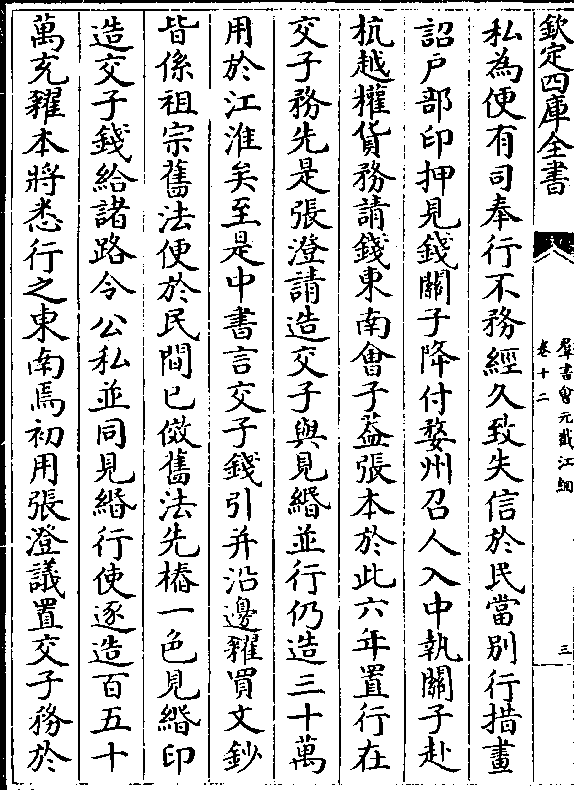 欽定四庫全書
羣書會元截江網
卷十二
三
私為便有司奉行不務經久致失信於民當别行措畫
詔戸部印押見錢關子降付婺州召人入中執關子赴
杭越榷貨務請錢東南會子葢張本於此六年置行在
交子務先是張澄請造交子與見緡並行仍造三十萬
用於江淮矣至是中書言交子錢引并沿邊糴買文鈔
皆係祖宗舊法便於民間已倣舊法先樁一色見緡印
造交子錢給諸路令公私並同見緡行使逐造百五十
萬充糴本將悉行之東南焉初用張澄議置交子務於